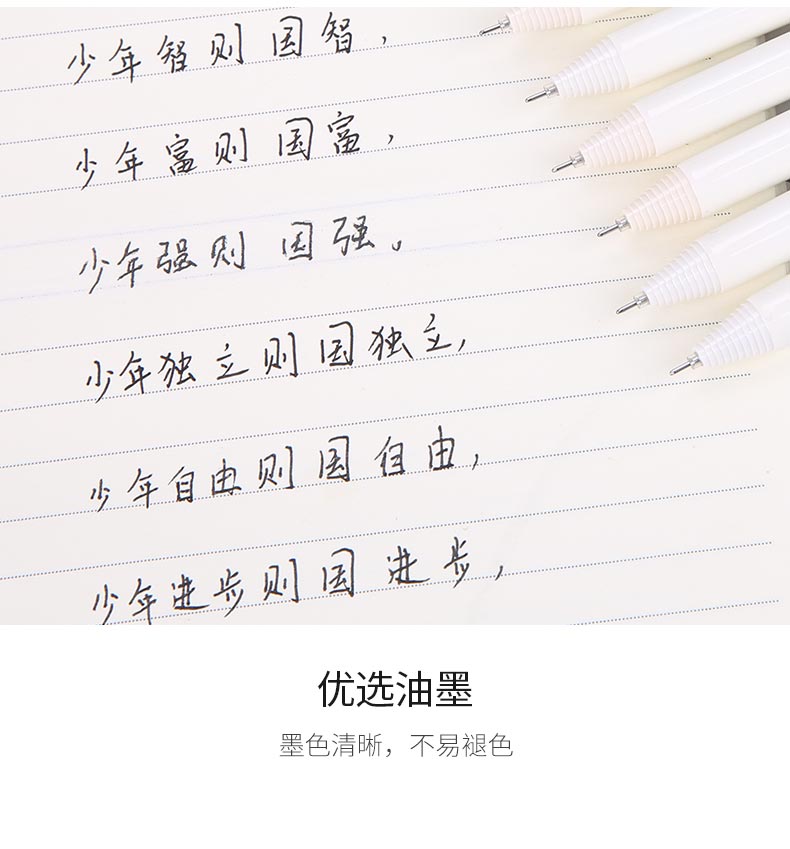 少年智则国智，
少年富则国富，
少年强则国强。
少年独立则国独立，
少年自由则国自由，
少年进步则国进步，
优选油墨
墨色清晰，不易褪色